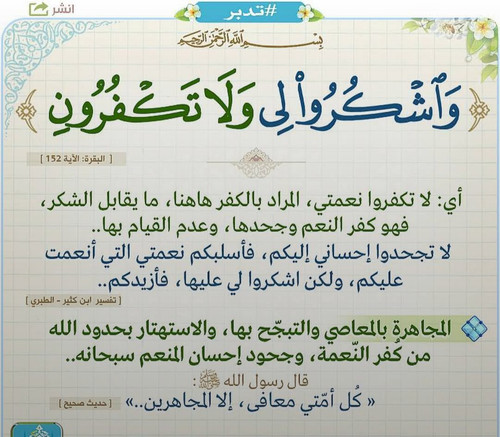 #تدبر
انشر
بِسْمِ اللَّهِ الرَّحْمَٰنِ الرَّحِيمِ
﴿وَٱشْكُرُوا۟ لِى وَلَا تَكْفُرُونِ﴾
[ البقرة: الآية 152 ]
أي: لا تكفروا نعمتي، المراد بالكفر هاهنا، ما يقابل الشكر،
فهو كفر النعم وجحدها، وعدم القيام بها..
لا تجحدوا إحساني إليكم، فأسلبكم نعمتي التي أنعمت
عليكم، ولكن اشكروا لي عليها، فأزيدكم..
[ تفسير ابن كثير - الطبري ]
المجاهرة بالمعاصي والتبجّح بها، والاستهتار بحدود الله
من كُفر النّعمة، وجحود إحسان المنعم سبحانه..
قال رسول الله ﷺ:
« كُل أمّتي معافى، إلا المجاهرين..»
[ حديث صحيح ]